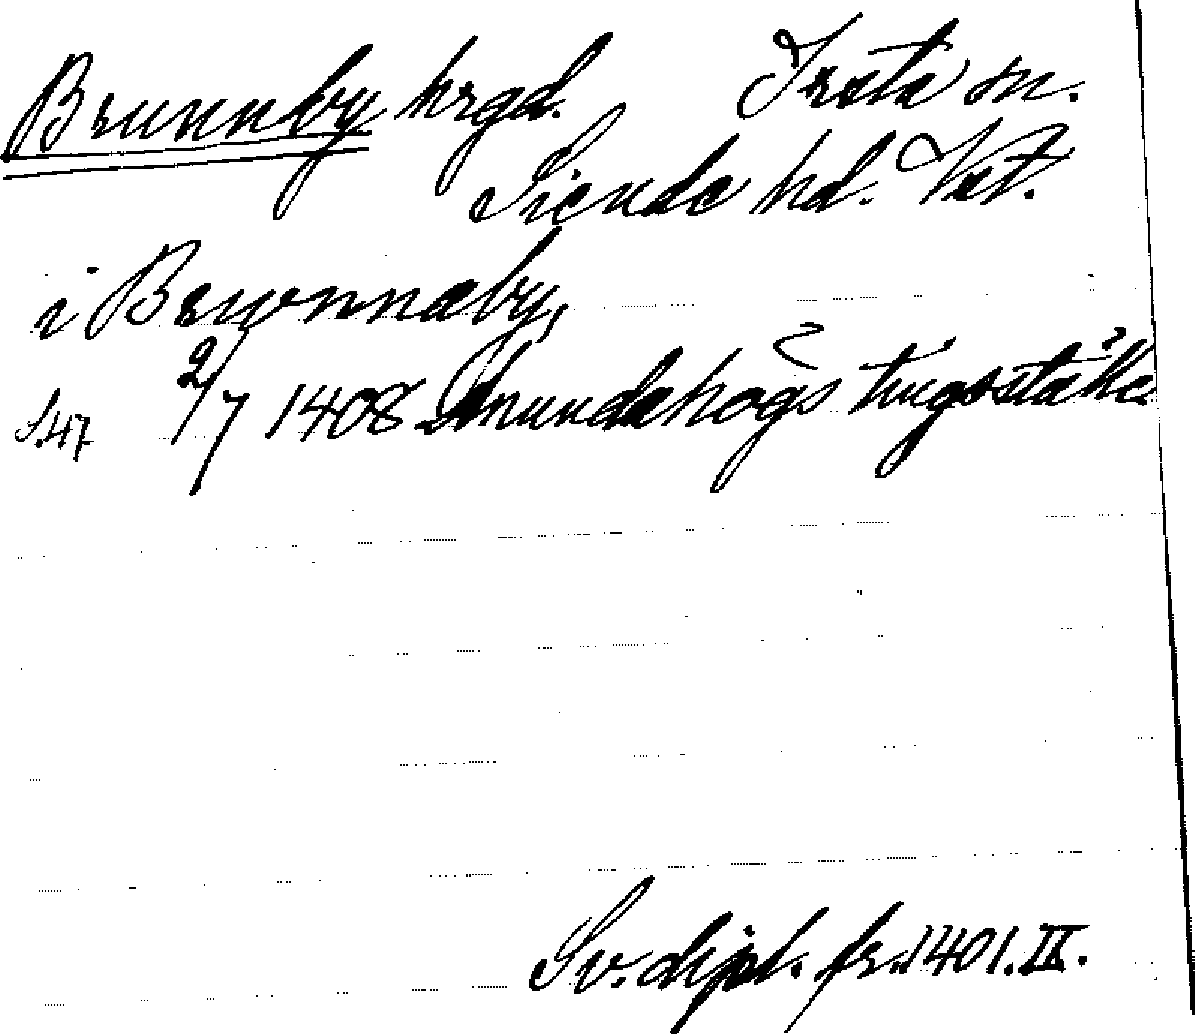 Brunnby hrgd. Irsta sn.
Siende hd. Vst.
i Brwnnæby,
S. 47 2/7 1408 Anundahögs tingsställe
Sv. dipl. fr. 1401. II.